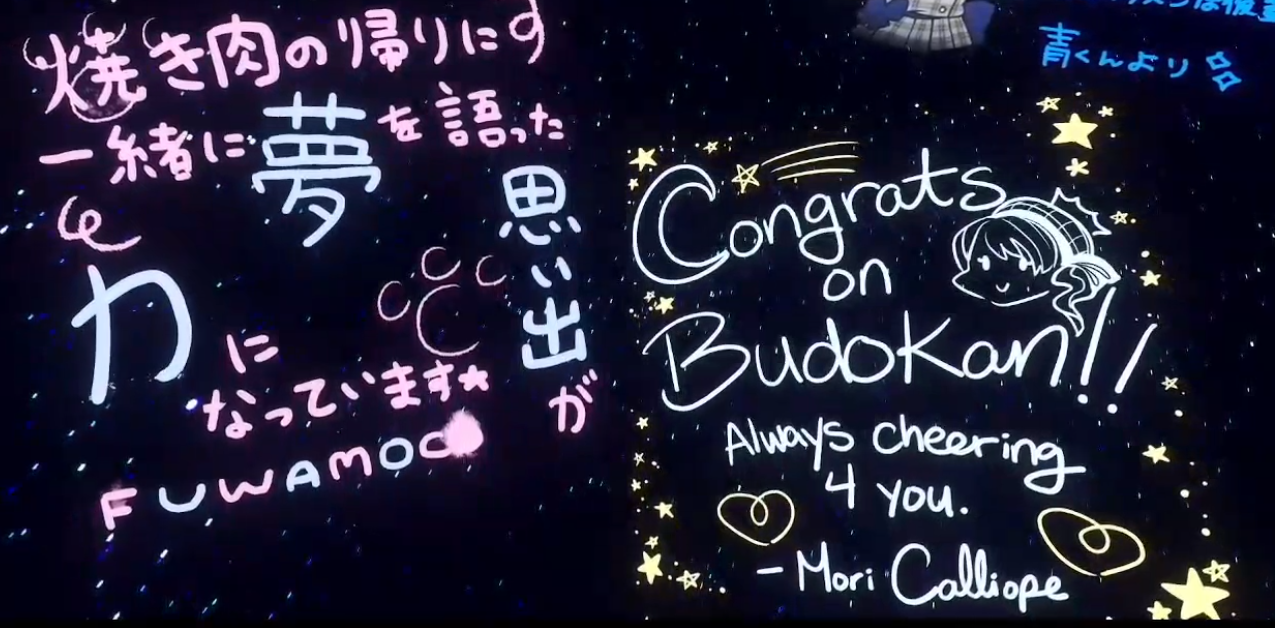 焼き肉の帰りに
一緒に夢を語った
思い出が
力に
なっています★
FUWAMOCO
青くんより
Congrats
on
Budokan!!
Always cheering
4 you.
- Mori Calliope